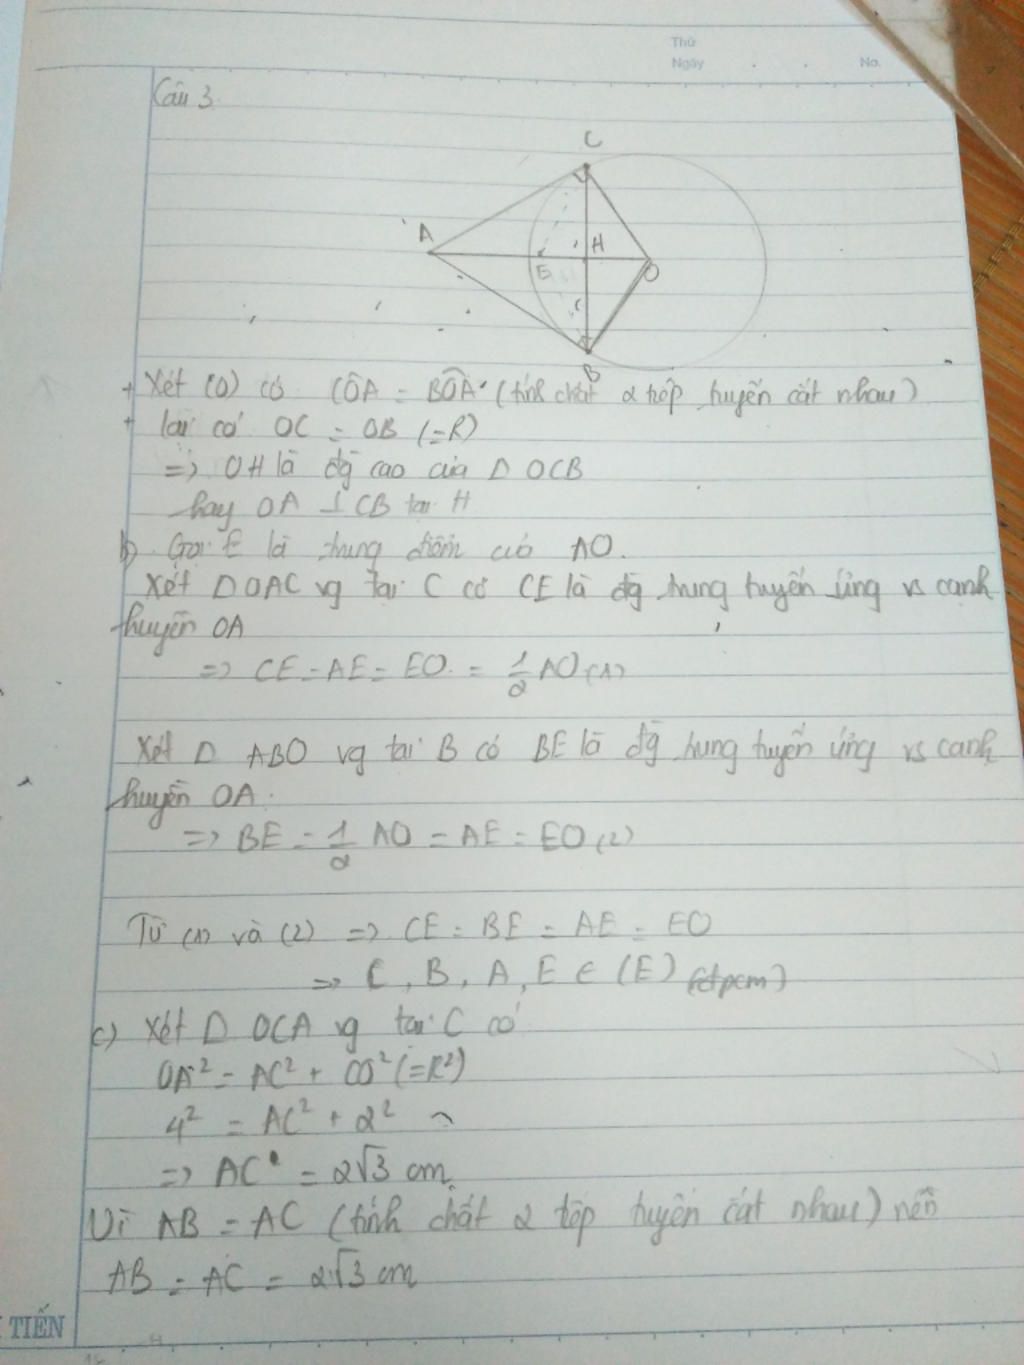 Thứ
Ngày . . No.
Câu 3
C
A
H
E
O
B
+ Xét (O) có CÔA = BÔA (tính chất 2 tiếp tuyến cắt nhau)
+ lại có OC = OB (=R)
=> OH là đg cao của Δ OCB
hay OA ⊥ CB tại H
b) Gọi E là trung điểm của AO.
Xét Δ OAC vg tại C có CE là đg trung tuyến ứng vs cạnh
huyền OA
=> CE = AE = EO = 1/2 AO (1)
Xét Δ ABO vg tại B có BE là đg trung tuyến ứng vs cạnh
huyền OA.
=> BE = 1/2 AO = AE = EO (2)
Từ (1) và (2) => CE = BE = AE = EO
=> C, B, A, E ∈ (E) (đpcm)
c) Xét Δ OCA vg tại C có
OA² = AC² + CO² (=R²)
4² = AC² + 2²
=> AC = 2√3 cm.
Vì AB = AC (tính chất 2 tiếp tuyến cắt nhau) nên
AB = AC = 2√3 cm
TIẾN